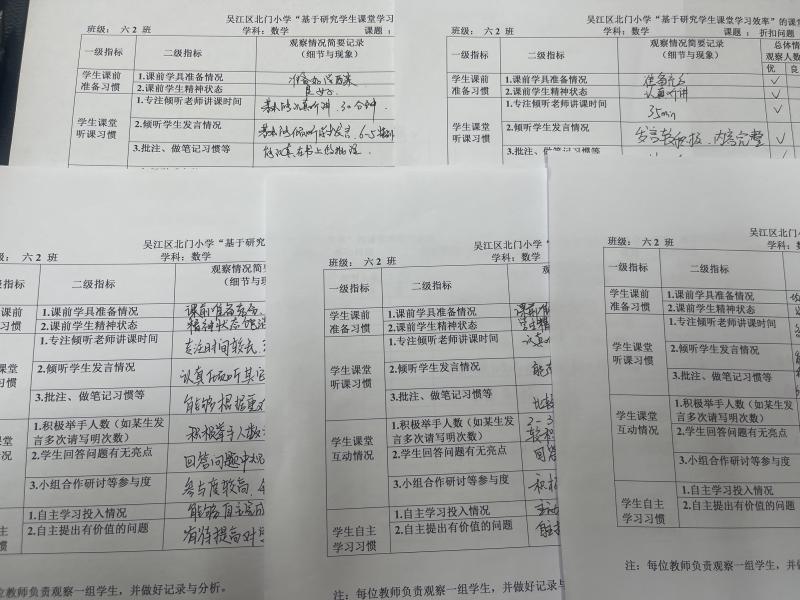 吴江区北门小学“基于研究学生课堂学习
班级： 六 2 班 学科：数学 课题：
一级指标 二级指标 观察情况简要记录
（细节与现象）
学生课前
准备习惯
1.课前学具准备情况
2.课前学生精神状态
良好
学生课堂
听课习惯
1.专注倾听老师讲课时间
30分钟
2.倾听学生发言情况
3.批注、做笔记习惯等
吴江区北门小学“基于研究学生课堂学习效率”的课
班级： 六 2 班 学科：数学 课题 ： 折扣问题
一级指标 二级指标 观察情况简要记录
（细节与现象）
总体情
观察人数
优 良
学生课前
准备习惯
1.课前学具准备情况
2.课前学生精神状态
认真听讲
学生课堂
听课习惯
1.专注倾听老师讲课时间
35min
2.倾听学生发言情况
发言较积极、内容完整
3.批注、做笔记习惯等
吴江区北门小学“基于研究
级： 六 2 班 学科：数学
级指标 二级指标 观察情况简要
（细节与现
生课前
备习惯
1.课前学具准备情况
课前准备齐全
2.课前学生精神状态
精神状态饱满
生课堂
课习惯
1.专注倾听老师讲课时间
专注时间较长
2.倾听学生发言情况
认真倾听其它
3.批注、做笔记习惯等
能够根据要求
生课堂
动情况
1.积极举手人数（如某生发
言多次请写明次数）
积极举手人数
2.学生回答问题有无亮点
回答问题中
3.小组合作研讨等参与度
参与度较高
生自主
习习惯
1.自主学习投入情况
能够自主
2.自主提出有价值的问题
有待提高
位教师负责观察一组学生，并做好记录与分析。
吴江区北门小学“基
班级： 六 2 班 学科：数学
一级指标 二级指标 观
学生课前
准备习惯
1.课前学具准备情况
课前准
2.课前学生精神状态
学生精
学生课堂
听课习惯
1.专注倾听老师讲课时间
认真
2.倾听学生发言情况
3.批注、做笔记习惯等
比较
学生课堂
互动情况
1.积极举手人数（如某生发
言多次请写明次数）
2-3
较积
2.学生回答问题有无亮点
回答
3.小组合作研讨等参与度
积极
学生自主
学习习惯
1.自主学习投入情况
主动
2.自主提出有价值的问题
注：每位教师负责观察一组学生，并做好记录与
吴江区北门小学
班级： 六 2 班 学科：
一级指标 二级指标
学生课前
准备习惯
1.课前学具准备情况
2.课前学生精神状态
学生课堂
听课习惯
1.专注倾听老师讲课时间
2.倾听学生发言情况
3.批注、做笔记习惯等
学生课堂
互动情况
1.积极举手人数（如某生发
言多次请写明次数）
2.学生回答问题有无亮点
3.小组合作研讨等参与度
学生自主
学习习惯
1.自主学习投入情况
2.自主提出有价值的问题
注：每位教师负责观察一组学生，并做好记